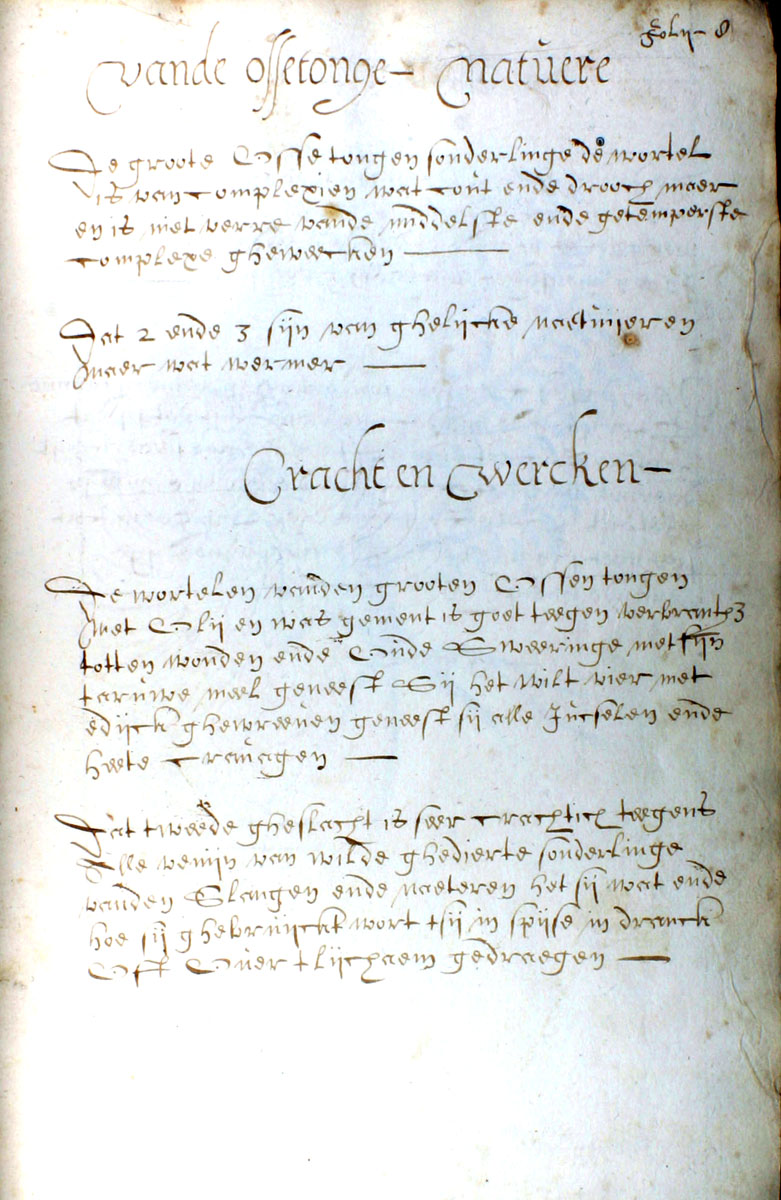 folij 8
vande ossetonge – natuere
De groote Ossetongen sonderlinge de wortel
is van complexien wat cout ende drooch maer
en is niet verre vande middelste ende getemperste
complexe gheweecken —
Dat 2 ende 3 sijn van ghelijcke naetuieren
maer wat wermer —
Cracht en Wercken –
De wortelen vanden grooten Ossen tongen
Met Olij en was gement is goet teegen
totten wonden ende Oude Sweeringe met fijn
taruwe meel geneest Sij het wilt vier met
edijck ghewreeven geneest sij alle Jucselen ende
heete
Dat tweede gheslacht is seer crachtich teegens
Alle venijn van wilde ghedierte sonderlinge
vanden Slangen ende naeteren het sij wat ende
hoe sij ghebruijckt wort tsij in spijse in dranck
Oft Over tlijchaem gedraegen —